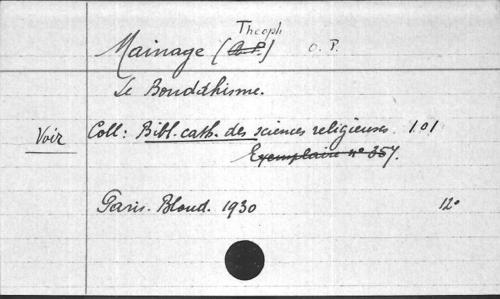 Theoph
Mainage (R. P.) O. P.
Le Bouddhisme.
Voir Coll: Bibl. cath. des sciences religieuses 101
Exemplaire n° 357.
Paris. Bloud. 1930 12°